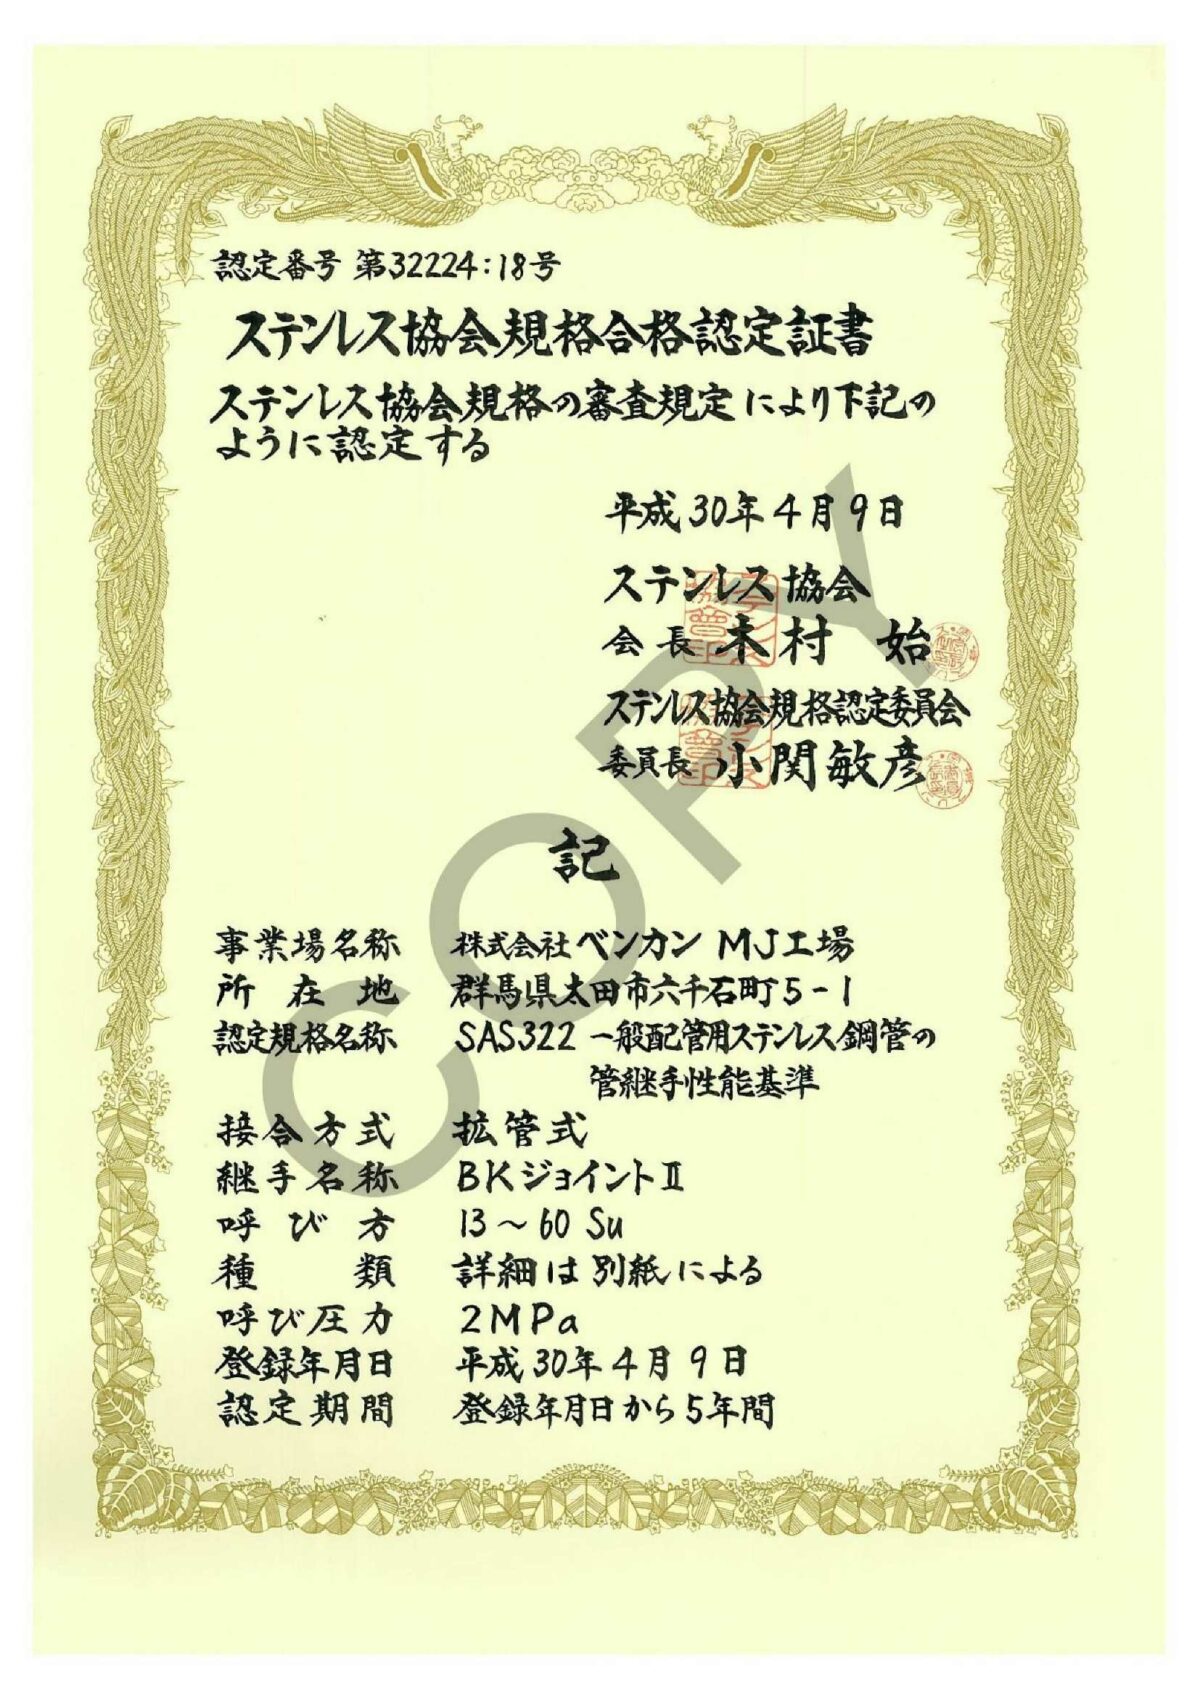 認定番号 第32224:18号
ステンレス協会規格合格認定証書
ステンレス協会規格の審査規定により下記の
ように認定する
平成30年4月9日
ステンレス協会
会長 木村 始
ステンレス協会規格認定委員会
委員長 小関敏彦
記
事業場名称 株式会社ベンカン MJ工場
所在地 群馬県太田市六千石町5-1
認定規格名称 SAS322 一般配管用ステンレス鋼管の
管継手性能基準
接合方式 拡管式
継手名称 BKジョイントⅡ
呼び方 13～60 Su
種類 詳細は別紙による
呼び圧力 2MPa
登録年月日 平成30年4月9日
認定期間 登録年月日から5年間
COPY